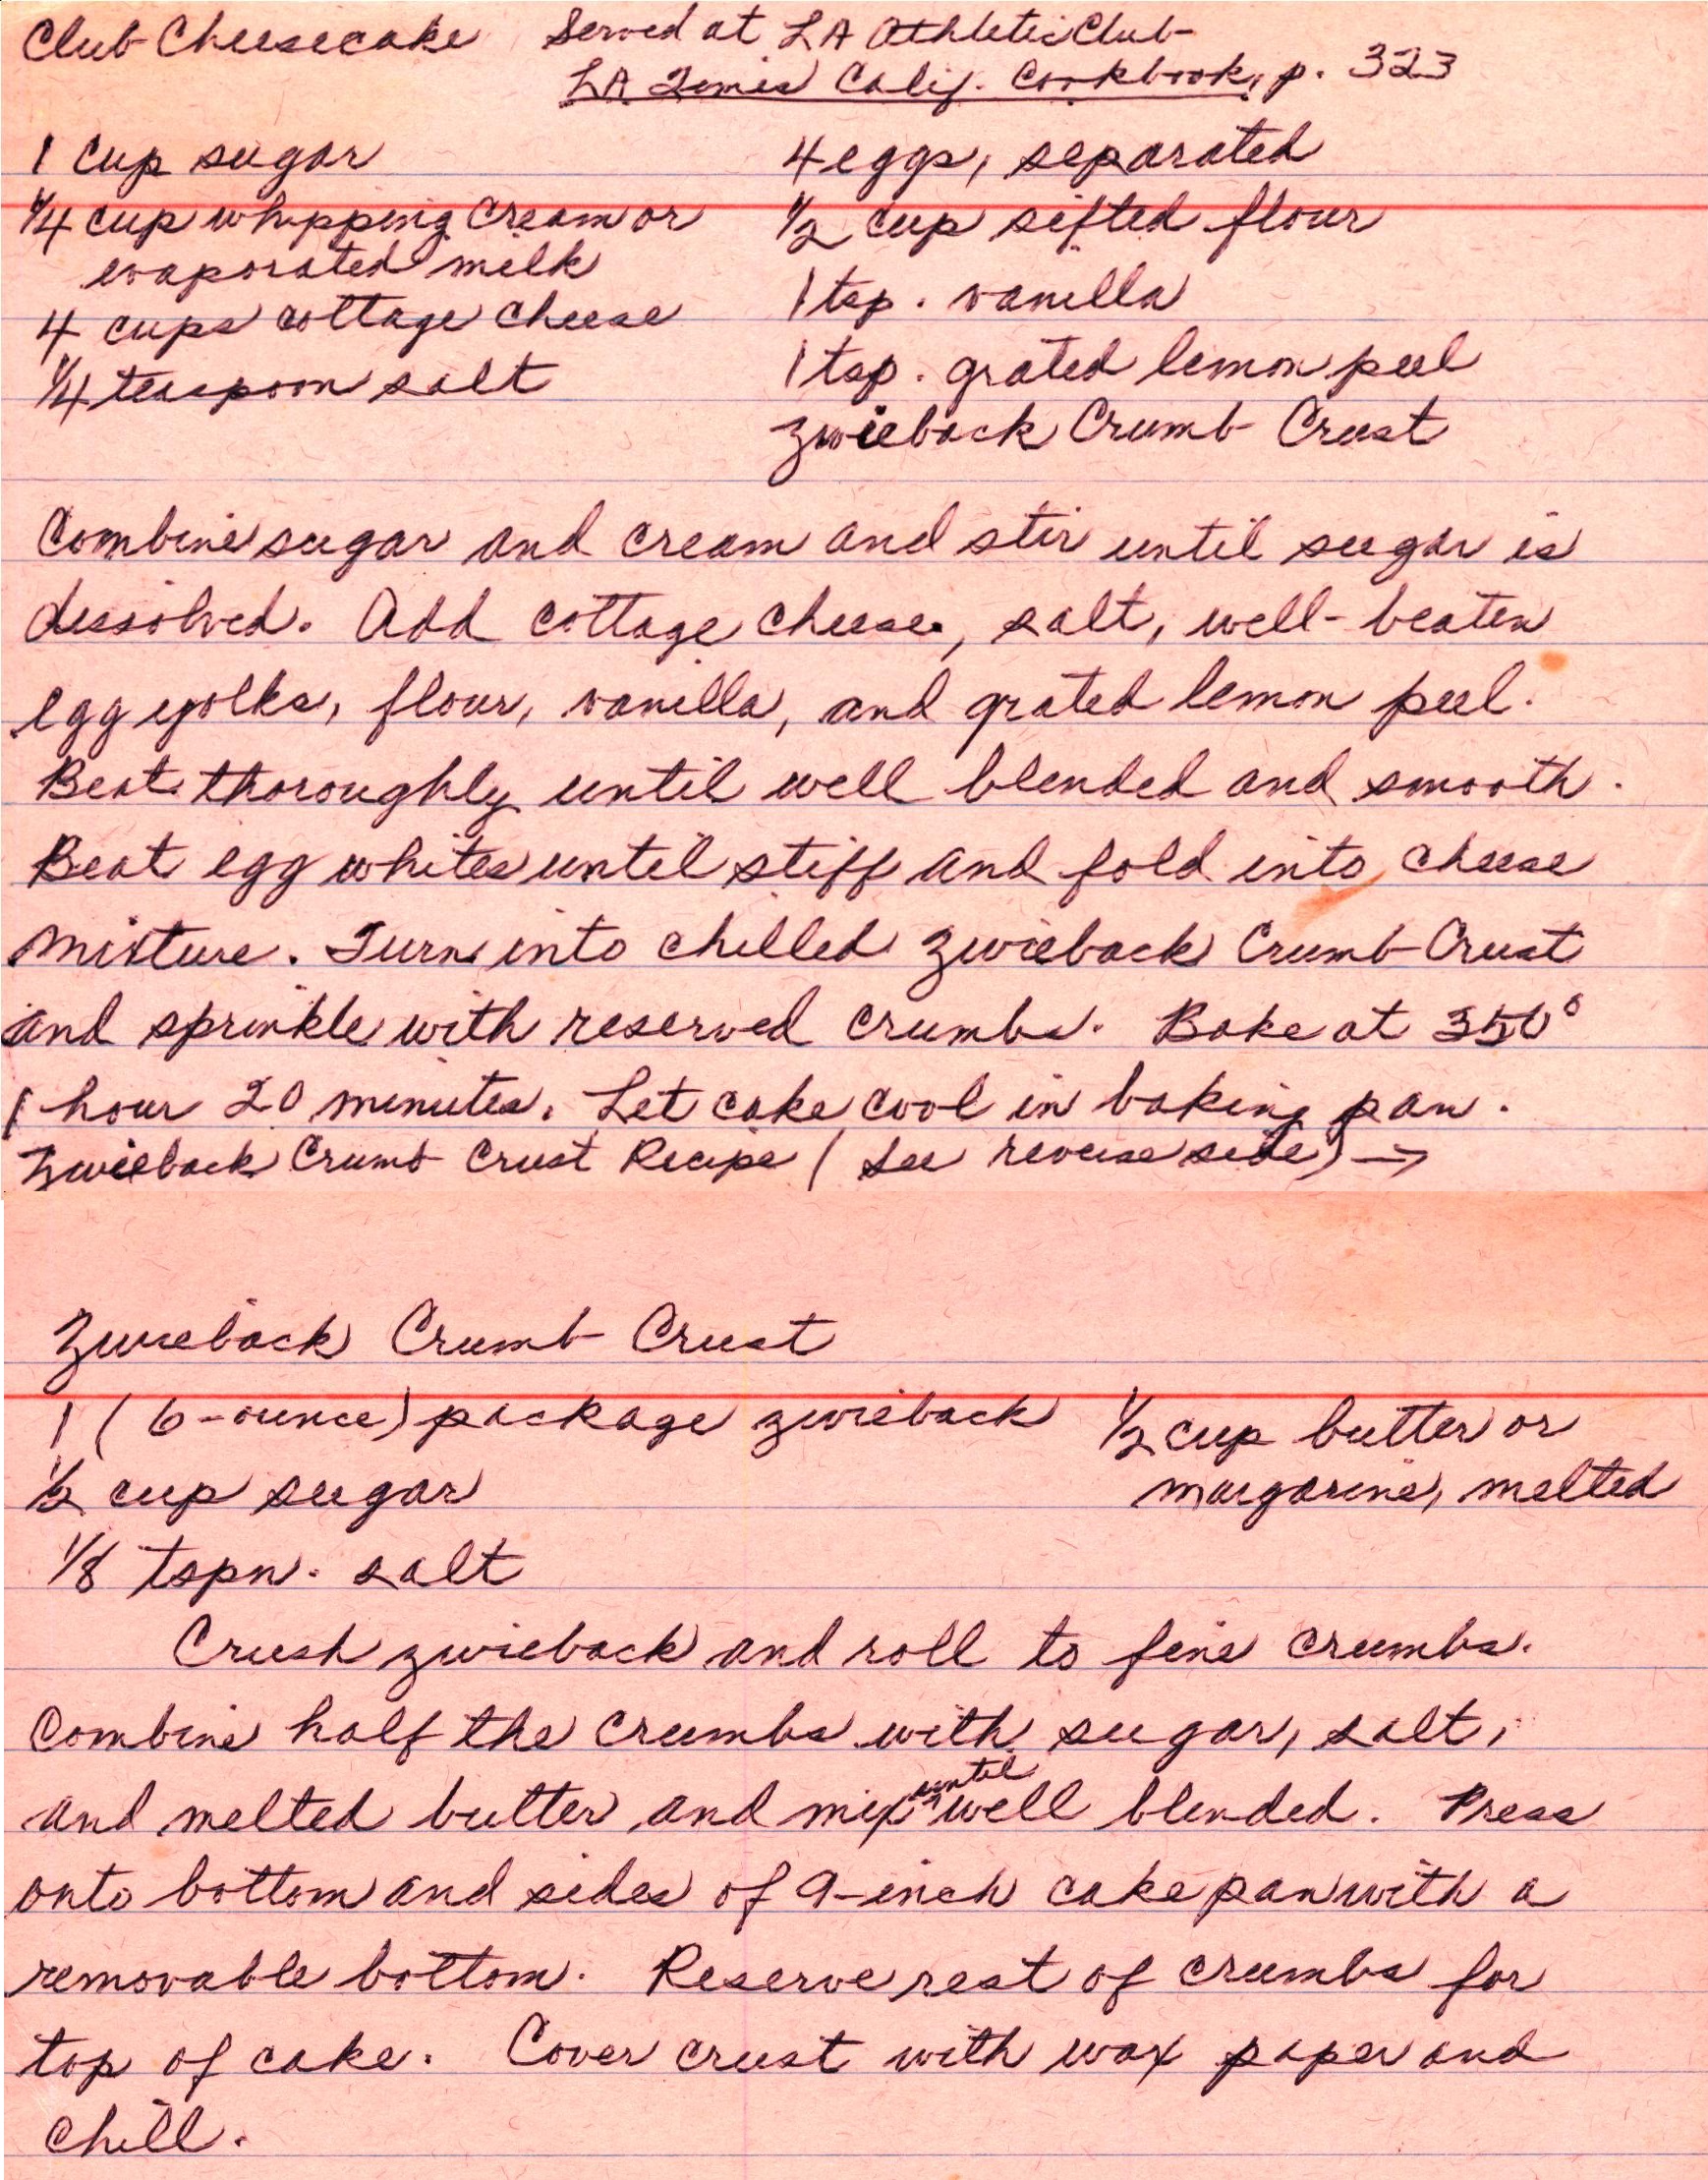 Club Cheesecake Served at LA Athletic Club-
LA Times Calif. Cookbook, p. 323
1 cup sugar
1/4 cup whipping cream or
evaporated milk
4 cups cottage cheese
1/4 teaspoon salt
4 eggs, separated
1/2 cup sifted flour
1 tsp. vanilla
1 tsp. grated lemon peel
Zwieback Crumb Crust
Combine sugar and cream and stir until sugar is
dissolved. Add cottage cheese, salt, well-beaten
egg yolks, flour, vanilla, and grated lemon peel.
Beat thoroughly until well blended and smooth.
Beat egg whites until stiff and fold into cheese
mixture. Turn into chilled Zwieback Crumb Crust
and sprinkle with reserved crumbs. Bake at 350°
1 hour 20 minutes. Let cake cool in baking pan.
Zwieback Crumb Crust Recipe (see reverse side) →
Zwieback Crumb Crust
1 (6-ounce) package zwieback
1/2 cup sugar
1/8 tspn. salt
1/2 cup butter or
margarine, melted
Crush zwieback and roll to fine crumbs.
Combine half the crumbs with sugar, salt,
and melted butter and mix until well blended. Press
onto bottom and sides of 9-inch cake pan with a
removable bottom. Reserve rest of crumbs for
top of cake. Cover crust with wax paper and
chill.